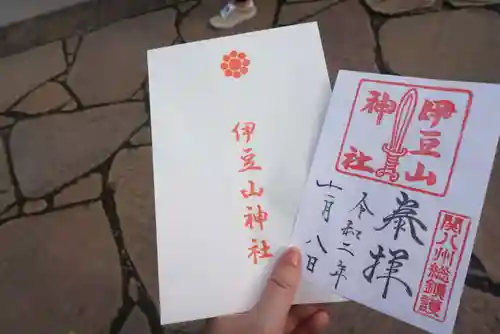 伊豆山神社
伊豆山
神社
奉拝
関八州総鎮護
令和二年
十一月八日